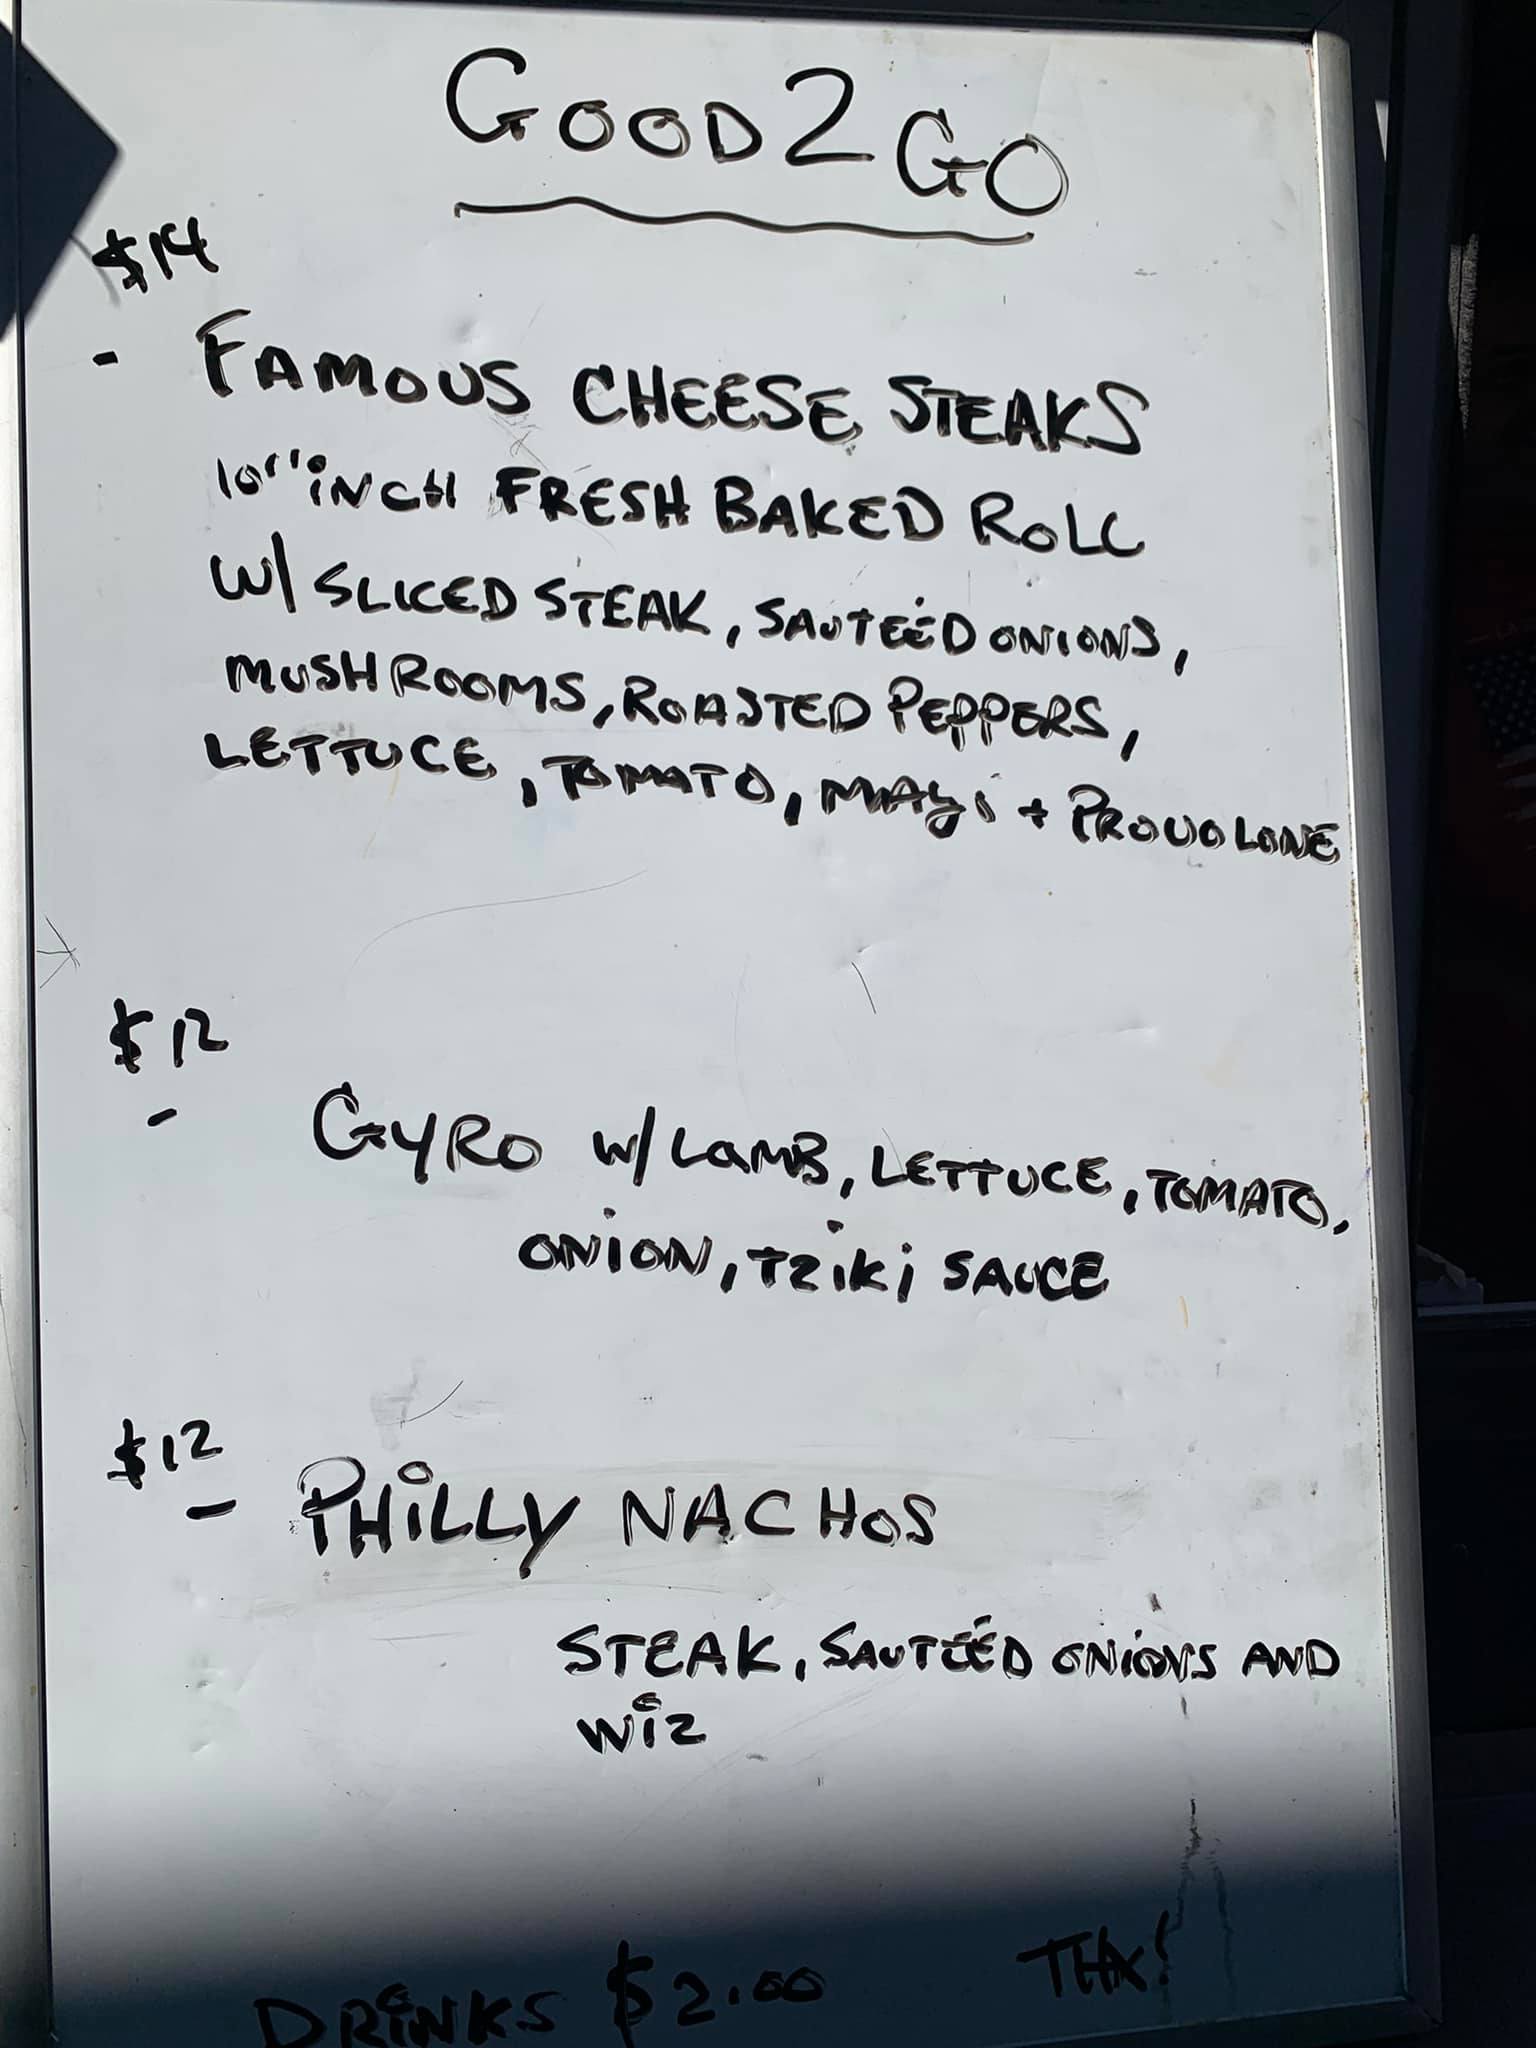 GOOD 2 GO
$14
- FAMOUS CHEESE STEAKS
10" iNCH FRESH BAKED ROLL
W/ SLICED STEAK, SAUTEÉD ONIONS,
MUSHROOMS, ROASTED PEPPERS,
LETTUCE, TOMATO, MAYi + PROVOLONE
$12
- GYRO W/ LAMB, LETTUCE, TOMATO,
ONiON, TZiKi SAUCE
$12
- PHiLLY NACHOS
STEAK, SAUTEÉD ONiONS AND
WiZ
DRiNKS $2.00 THX!